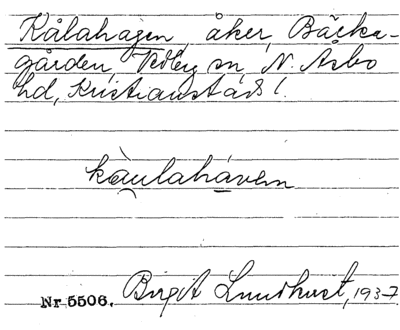 Kålahagen, åker, Bäcka-
gården, sn, N. Åsbo
hd, Kristianstads l.
kåulahávem
Nr 5506. Birgit Lundkvist, 1937